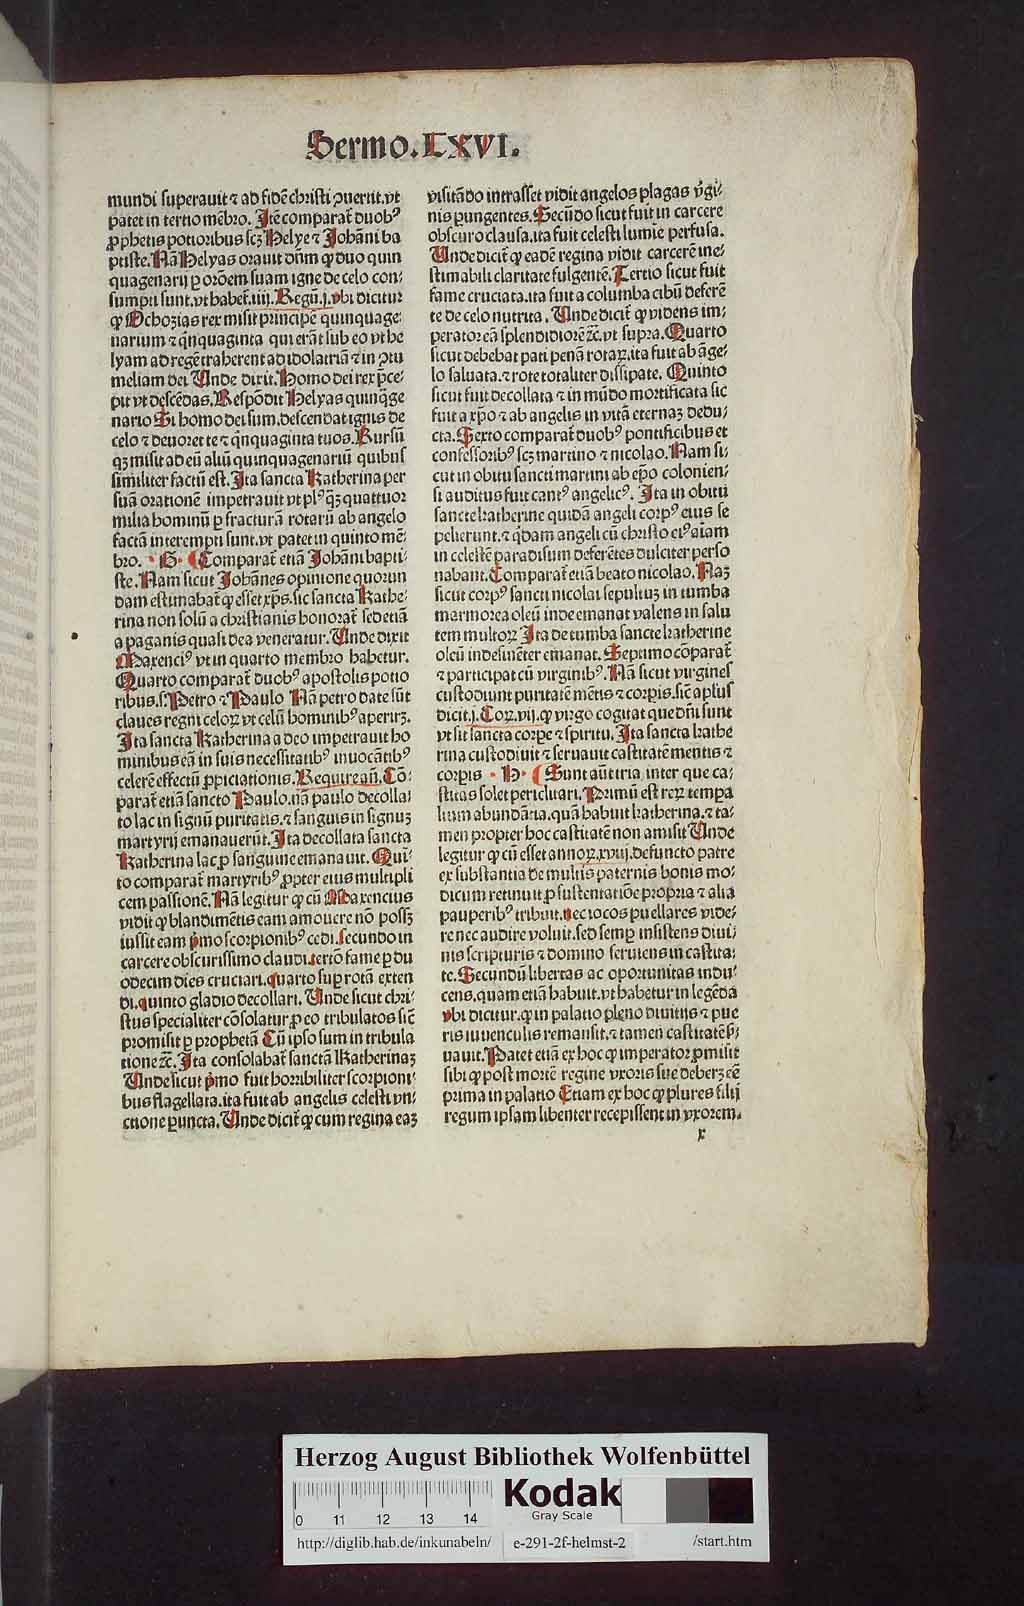 Sermo.LXVI.
mundi superauit ⁊ ad fidē christi ꝯuertit.vt
patet in tertio mēbro. Itē comparat̄ duobꝰ
ꝓphetis potioribus scꝫ Helye ⁊ Johāni ba
ptiste. Nā Helyas orauit dn̄m ꝙ duo quin
quagenarij ꝑ orōem suam igne de celo con⸗
sumpti sunt.vt habet̄.iiij.Regū.j.vbi dicitur
ꝙ Ochozias rex misit principē quinquage⸗
narium ⁊ q̄nquaginta qui erāt sub eo vt he
lyam ad regē traherent ad idolatriā ⁊ in ꝯtu
meliam dei. Unde dixit. Homo dei rex p̄ce⸗
pit vt descēdas. Respōdit Helyas quinq̄ge
nario Si homo dei sum.descendat ignis de
celo ⁊ deuoret te ⁊ q̄nquaginta tuos. Rursū
qꝫ misit ad eū aliū quinquagenariū quibus
similiter factū est. Ita sancta Katherina per
suā orationē impetrauit vt plꝰ qꝫ quattuor
milia hominū ꝑ fracturā rotarū ab angelo
factā interempti sunt.vt patet in quinto mē⸗
bro. G Comparat̄ etiā Johāni bapti⸗
ste. Nam sicut Johānes opinione quorun
dam estimabat̄ ꝙ esset xp̄s.sic sancta Kathe⸗
rina non solū a christianis honorat̄ sed etiā
a paganis quasi dea veneratur. Unde dixit
Maxenciꝰ vt in quarto membro habetur.
Quarto comparat̄ duobꝰ apostolis potio
ribus.s.Petro ⁊ Paulo Nā petro date sūt
claues regni celoꝝ vt celū hominibꝰ aperirꝫ.
Ita sancta Katherina a deo impetrauit ho
minibus eā in suis necessitatibꝰ inuocātibꝰ
celerē effectū ꝓpiciationis. Require an̄. Cō⸗
parat̄ etiā sancto Paulo.nā paulo decolla⸗
to lac in signū puritatis.⁊ sanguis in signuꝫ
martyrij emanauerūt. Ita decollata sancta
Katherina lac ꝓ sanguine emanauit. Quī⸗
to comparat̄ martyribꝰ ꝓpter eius multipli
cem passionē. Nā legitur ꝙ cū Maxencius
vidit ꝙ blandimētis eam amouere nō possꝫ
iussit eam p̄mo scorpionibꝰ cedi.secundo in
carcere obscurissimo claudi.tertō fame ꝑ du
odecim dies cruciari.quarto suꝑ rotā exten
di.quinto gladio decollari. Unde sicut chri⸗
stus specialiter cōsolatur ꝓ eo tribulatos sic̄
promisit ꝑ prophetā Cū ipso sum in tribula
tione ⁊c̄. Ita consolabat̄ sanctā Katherinaꝫ
Unde sicut p̄mo fuit horribiliter scorpioni⸗
bus flagellata.ita fuit ab angelis celesti vn⸗
ctione ꝑuncta. Unde dicit̄ ꝙ cum regina eaꝫ
visitādo intrasset vidit angelos plagas v̄gi⸗
nis ꝑungentes. Secūdo sicut fuit in carcere
obscuro clausa.ita fuit celesti lumīe perfusa.
Unde dicit̄ ꝙ eadē regina vidit carcerē ine⸗
stimabili claritate fulgentē. Tertio sicut fuit
fame cruciata.ita fuit a columba cibū deferē
te de celo nutrita. Unde dicit̄ ꝙ videns im⸗
perator eā splendidiorē ⁊c̄. vt supra. Quarto
sicut debebat pati penā rotaꝝ.ita fuit ab āge⸗
lo saluata.⁊ rote totaliter dissipate. Quinto
sicut fuit decollata ⁊ in mūdo mortificata sic
fuit a xp̄o ⁊ ab angelis in vitā eternaꝫ dedu⸗
cta. Sexto comparat̄ duobꝰ pontificibus et
confessoribꝰ scꝫ martino ⁊ nicolao. Nam si⸗
cut in obitu sancti martini ab ep̄o colonien⸗
si auditus fuit cantꝰ angelicꝰ. Ita in obitu
sancte katherine quidā angeli corpꝰ eius se
pelierunt.⁊ q̄dam angeli cū christo eiꝰ aīam
in celestē paradisum deferētes dulciter perso
nabant. Comparat̄ etiā beato nicolao. Naꝫ
sicut corpꝰ sancti nicolai sepultuꝫ in tumba
marmorea oleū inde emanat valens in salu
tem multoꝝ Ita de tumba sancte katherine
oleū indesinēter emanat. Septimo cōparat̄
⁊ participat cū virginibꝰ. Nā sicut virgines
custodiunt puritatē mētis ⁊ corꝑis.sic̄ apl̄us
dicit.j.Coꝝ.vij.ꝙ virgo cogitat que dn̄i sunt
vt sit sancta corꝑe ⁊ spiritu. Ita sancta kathe
rina custodiuit ⁊ seruauit castitatē mentis ⁊
corꝑis H Sunt aūt tria inter que ca⸗
stitas solet periclitari. Primū est reꝝ tempa
lium abundātia.quā habuit katherina.⁊ ta⸗
men propter hoc castitatē non amisit Unde
legitur ꝙ cū esset annoꝝ.xviij.defuncto patre
ex substantia de multis paternis bonis mo⸗
dicum retinuit ꝓ sustentatiōe propria ⁊ alia
pauperibꝰ tribuit.nec iocos puellares vide⸗
re nec audire voluit.sed semꝑ insistens diui⸗
nis scripturis ⁊ domino seruiens in castita⸗
te. Secundū libertas ac oportunitas indu⸗
cens.quam etiā habuit.vt habetur in legēda
vbi dicitur.ꝙ in palatio pleno diuitijs ⁊ pue
ris iuuenculis remansit.⁊ tamen castitatē ẜ⸗
uauit. Patet etiā ex hoc ꝙ imperator ꝓmisit
sibi ꝙ post mortē regine vxoris sue deberꝫ eē
prima in palatio Etiam ex hoc ꝙ plures filij
regum ipsam libenter recepissent in vxorem.
x
Herzog August Bibliothek Wolfenbüttel
0 11 12 13 14
Kodak
Gray Scale
http://diglib.hab.de/inkunabeln/ e-291-2f-helmst-2 /start.htm